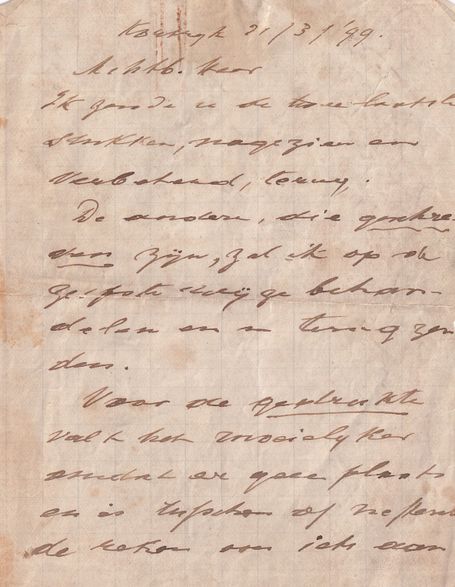 Kortryk 21/3/'99.
Achtb. Heer
Ik zende u de twee laatste
stukken, nagezien en
verbeterd, terug.
De andere, die geschre-
ven zijn, zal ik op de
wijze behan-
delen en u terug zen
den.
Voor de gedrukte
valt het moeielyker
omdat er geen plaats
en is tusschen of neffens
de reken om iets aan